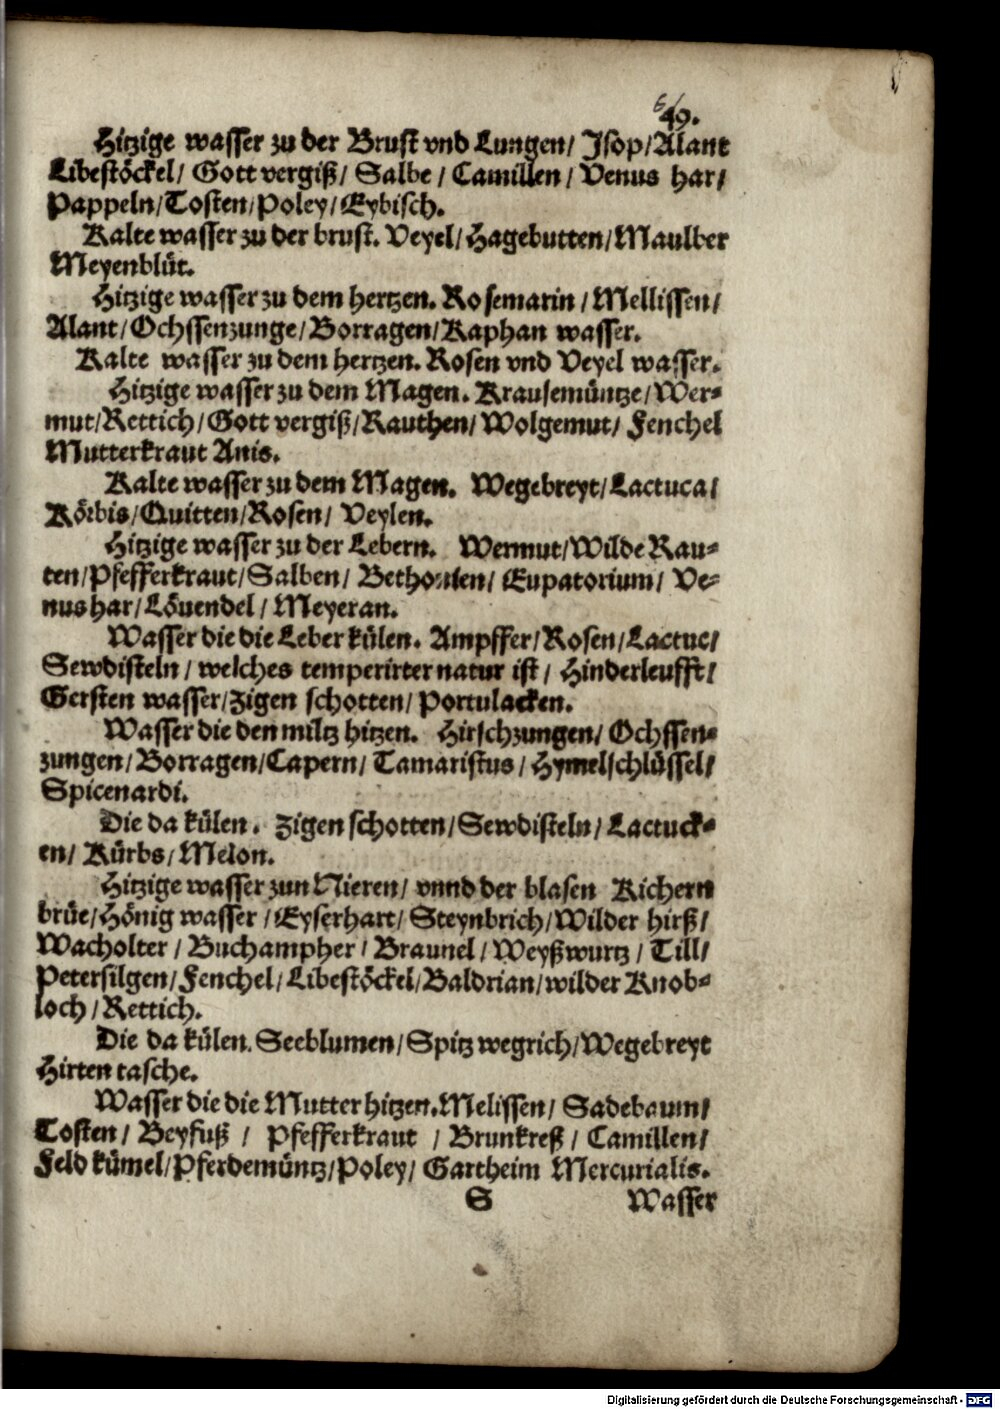 49.
Hitzige wasser zu der Brust vnd Lungen/ Isop/Alant
Libestöckel/ Gott vergiß/ Salbe/ Camillen/ Venus har/
Pappeln/Tosten/Poley/Eybisch.
Kalte wasser zu der brust. Veyel/Hagebutten/Maulber
Meyenblüt.
Hitzige wasser zu dem hertzen. Rosemarin/Mellissen/
Alant/Ochssenzunge/Borragen/Kaphan wasser.
Kalte wasser zu dem hertzen. Rosen vnd Veyel wasser.
Hitzige wasser zu dem Magen. Krausemüntze/Wer-
mut/Rettich/Gott vergiß/Rauthen/Wolgemut/ Fenchel
Mutterkraut Anis.
Kalte wasser zu dem Magen. Wegebreyt/Lactuca/
Körbis/Quitten/Rosen/ Veylen.
Hitzige wasser zu der Lebern. Wermut/Wilde Rau-
ten/Pfefferkraut/Salben/ Bethonien/ Eupatorium/ Ve-
nus har/Löuendel/Meyeran.
Wasser die die Leber külen. Ampffer/Rosen/Lactuc/
Sewdisteln/welches temperirter natur ist/ Hinderleufft/
Gersten wasser/Zigen schotten/Portulacken.
Wasser die den miltz hitzen. Hirschzungen/Ochssen-
zungen/Borragen/Capern/Tamaristus/Hymelschlüssel/
Spicenardi.
Die da külen. Zigen schotten/Sewdisteln/Lactuck-
en/ Kürbs/Melon.
Hitzige wasser zun Nieren/ vnnd der blasen Kichern
brüe/Hönig wasser/Eyserhart/Steynbrich/Wilder hirß/
Wacholter/Buchampher/Braunel/Weyßwurtz/Till/
Petersilgen/Fenchel/Libestöckel/Baldrian/wilder Knob-
loch/Rettich.
Die da külen. Seeblumen/Spitz wegrich/Wegebreyt
Hirten tasche.
Wasser die die Mutter hitzen. Melissen/ Sadebaum/
Tosten/ Beyfuß/ Pfefferkraut/ Brunkreß/ Camillen/
Feld kümel/Pferdemüntz/Poley/ Gartheim Mercurialis.
S Wasser
Digitalisierung gefördert durch die Deutsche Forschungsgemeinschaft - DFG